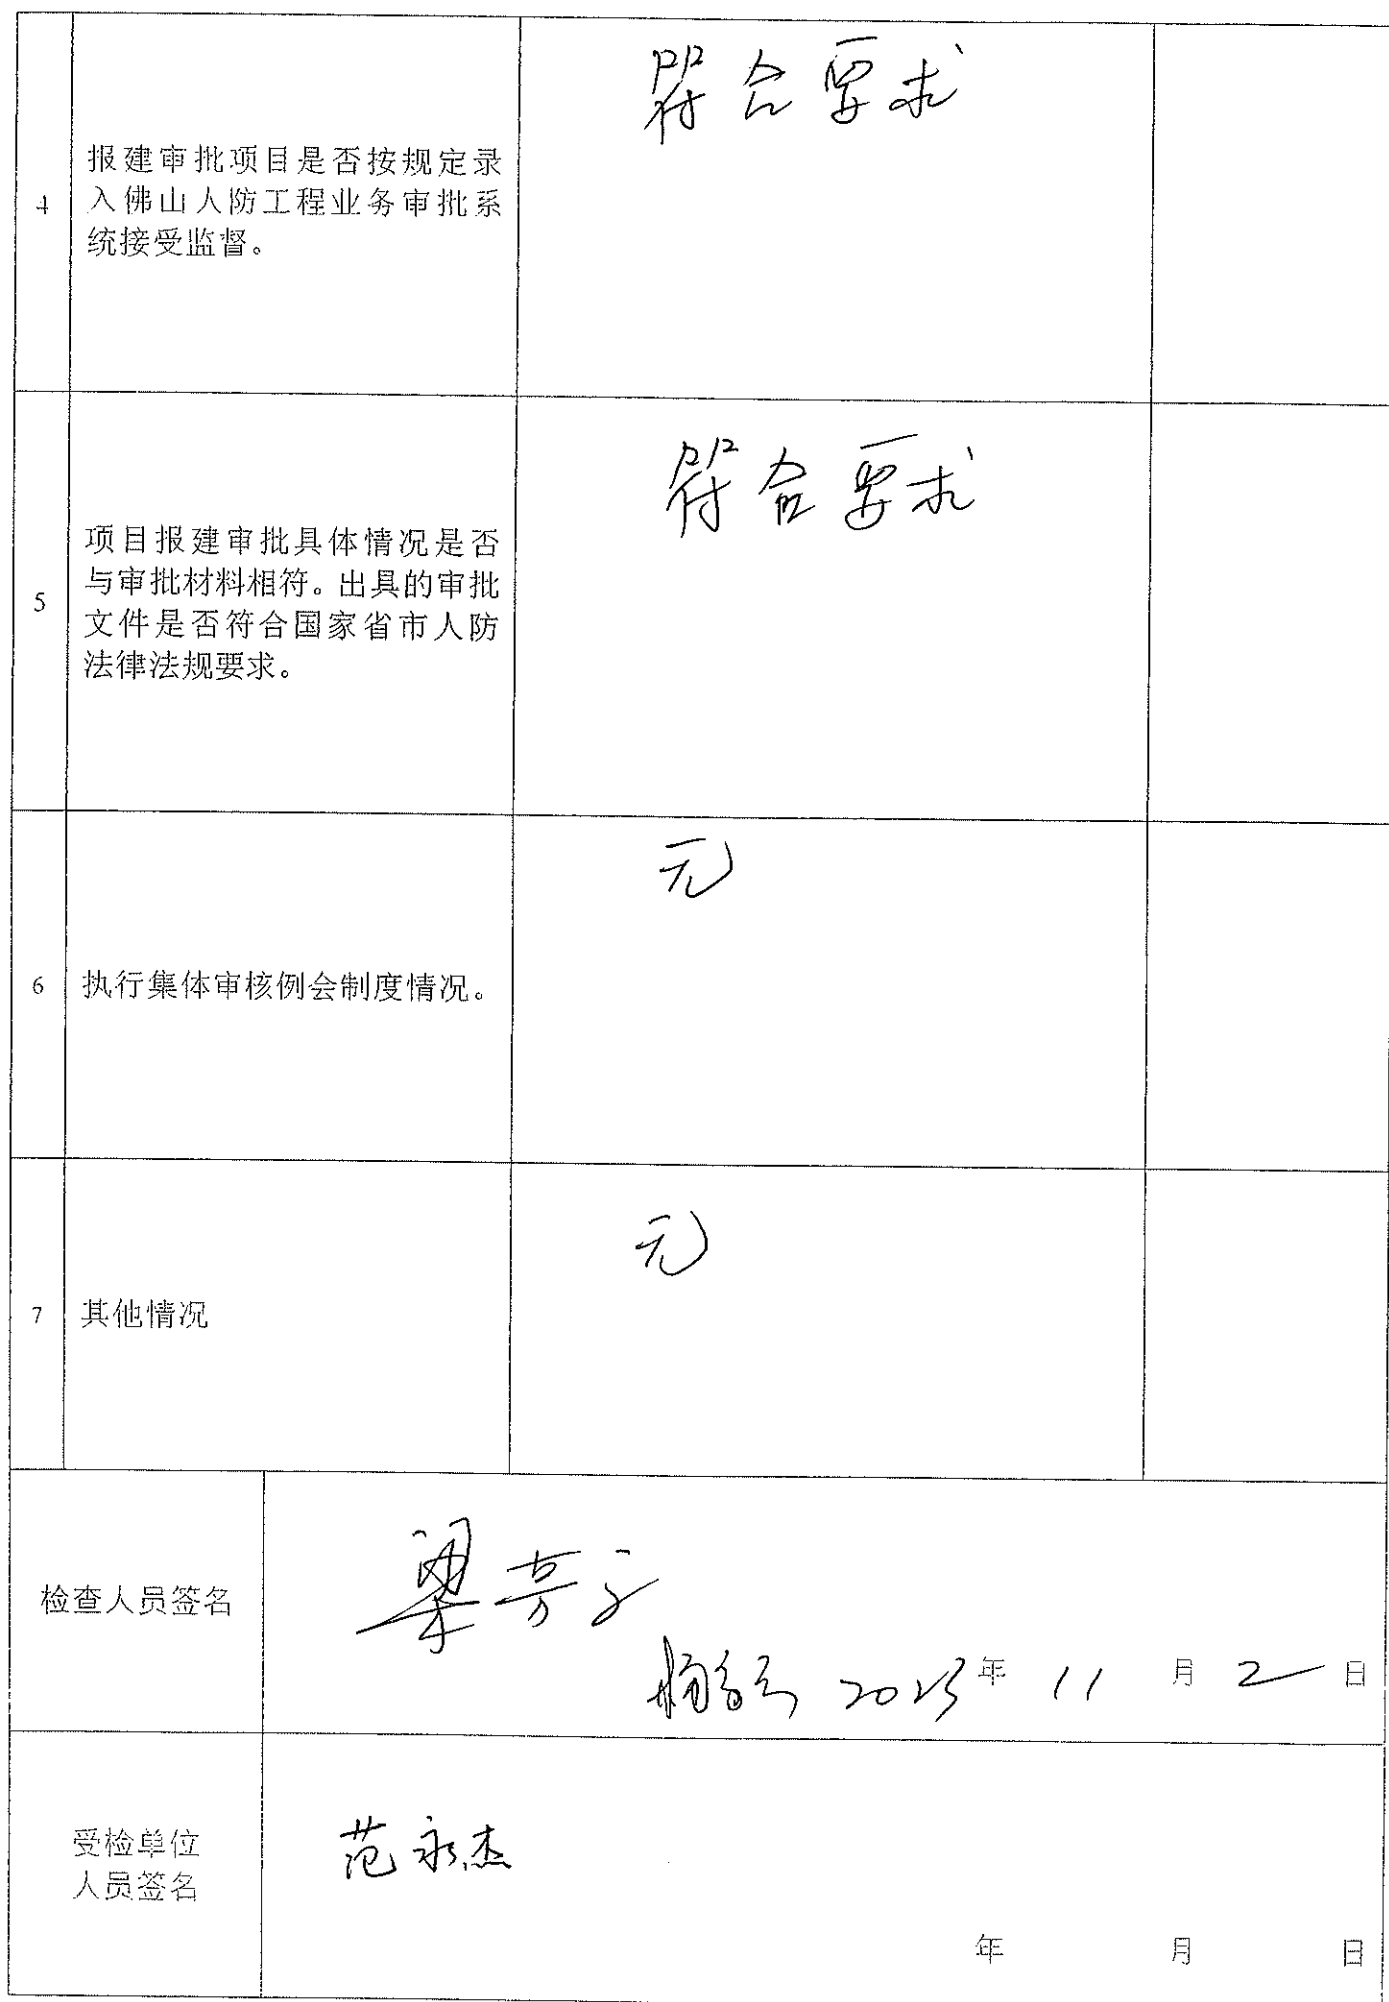 符合要求
4
报建审批项目是否按规定录
入佛山人防工程业务审批系
统接受监督。
符合要求
5
项目报建审批具体情况是否
与审批材料相符。出具的审批
文件是否符合国家省市人防
法律法规要求。
无
6
执行集体审核例会制度情况。
无
7
其他情况
检查人员签名
梁芳子
2023年 11 月 2 日
受检单位
人员签名
范永杰
年 月 日